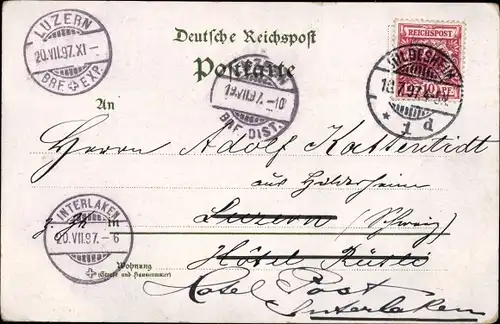 LUZERN
20.VII.97.XI-
BRF.EXP.
Deutsche Reichspost
Postkarte
LUZERN
19.VII.97.-10
BRF.DIST.
REICHSPOST
10 PF.
HILDESHEIM
18.7.97.
* 1 d
An
Herrn Adolf Kattentidt
aus Hildesheim
in Luzern (Schweiz)
INTERLAKEN
20.VII.97.-6
Hôtel Rütli
Wohnung
(Straße und Hausnummer)
Hotel Post
Interlaken